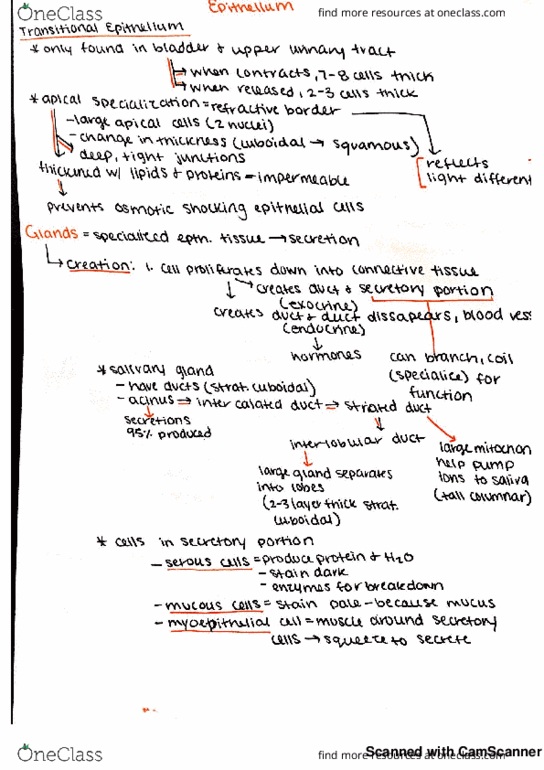 OneClass
Epithelium
find more resources at oneclass.com
Transitional Epithelium
* only found in bladder & upper urinary tract
when contracts, 7-8 cells thick
when released, 2-3 cells thick
* apical specialization = refractive border
- large apical cells (2 nuclei)
- change in thickness (cuboidal → squamous)
deep, tight junctions
reflects
light different
thickened w/ lipids & proteins - impermeable
prevents osmotic shocking epithelial cells
Glands = specialized epth. tissue → secretion
Creation: 1. cell proliferates down into connective tissue
creates duct & secretory portion
(exocrine)
creates duct & duct dissapears, blood vess
(endocrine)
hormones
can branch, coil
(specialize) for
function
* salivary gland
- have ducts (strat. cuboidal)
- acinus → intercalated duct → striated duct
secretions
95% produced
interlobular duct
large mitochon
help pump
ions to saliva
(tall columnar)
large gland separates
into lobes
(2-3 layer thick strat.
cuboidal)
* cells in secretory portion
- serous cells = produce protein & H2O
- stain dark
- enzymes for breakdown
- mucous cells = stain pale - because mucus
- myoepithelial cell = muscle around secretory
cells → squeeze to secrete
OneClass
find more resources at oneclass.com
Scanned with CamScanner